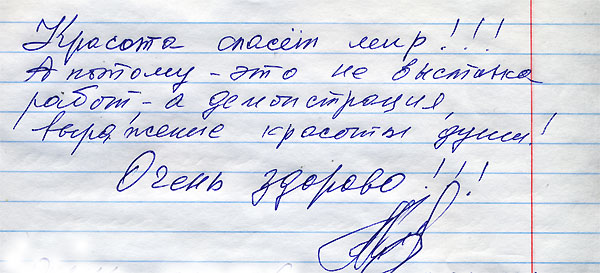 Красота спасёт мир!!!
А потому - это не выставка
работ - а демонстрация,
выражение красоты души!
Очень здорово!!!